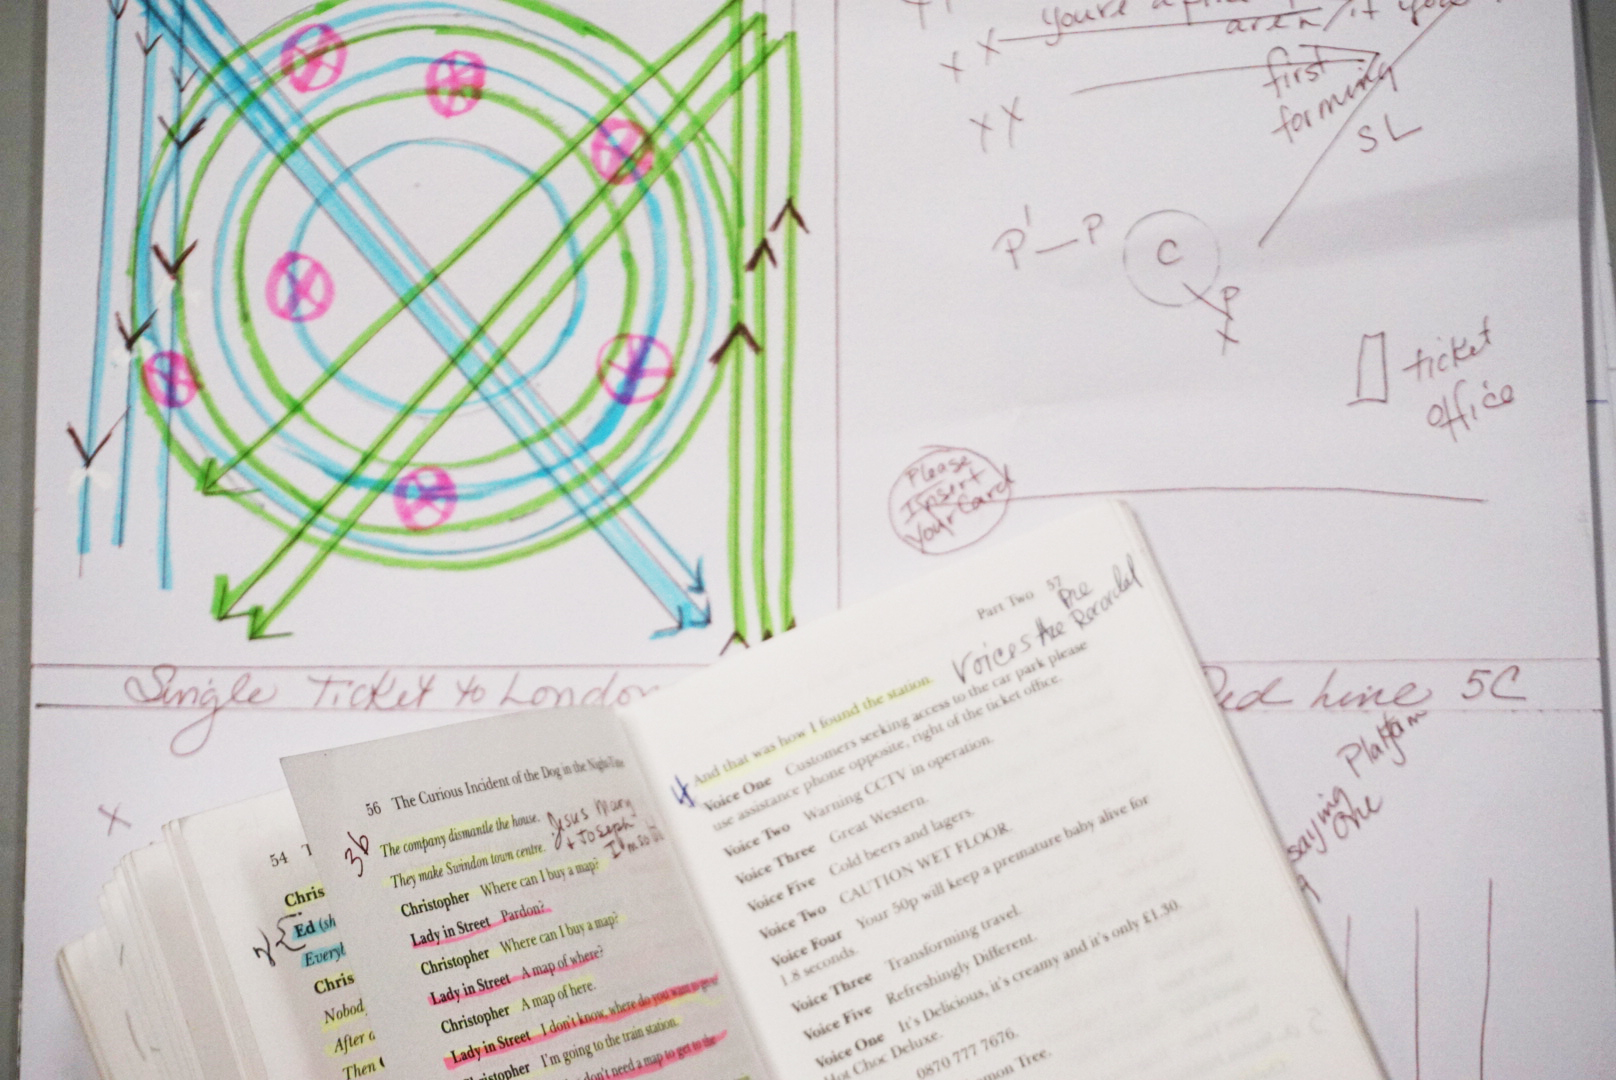 you're a
area/if you
X X
first
forming
X X
SL
P' — P
C
P
X
ticket
office
Please
Insert
Your Card
Single Ticket to London
Red Line 5C
X
Platform
saying
One
54
Chris
Ed (sh
Everyl
Chris
Nobod
After a
Then
56 The Curious Incident of the Dog in the Night-Time
36
The company dismantle the house.
Jesus Mary
+ Joseph
They make Swindon town centre.
Christopher Where can I buy a map?
Lady in Street Pardon?
Christopher Where can I buy a map?
Lady in Street A map of where?
Christopher A map of here.
Lady in Street I don't know, where do you want to
Christopher I'm going to the train station.
don't need a map to get to the
Part Two 57
Voices Are Pre Recorded
And that was how I found the station.
Voice One Customers seeking access to the car park please
use assistance phone opposite, right of the ticket office.
Voice Two Warning CCTV in operation.
Voice Three Great Western.
Voice Five Cold beers and lagers.
Voice Two CAUTION WET FLOOR.
Voice Four Your 50p will keep a premature baby alive for
1.8 seconds.
Voice Three Transforming travel.
Voice Five Refreshingly Different.
Voice One It's Delicious, it's creamy and it's only £1.30.
Hot Choc Deluxe.
0870 777 7676.
Tree.